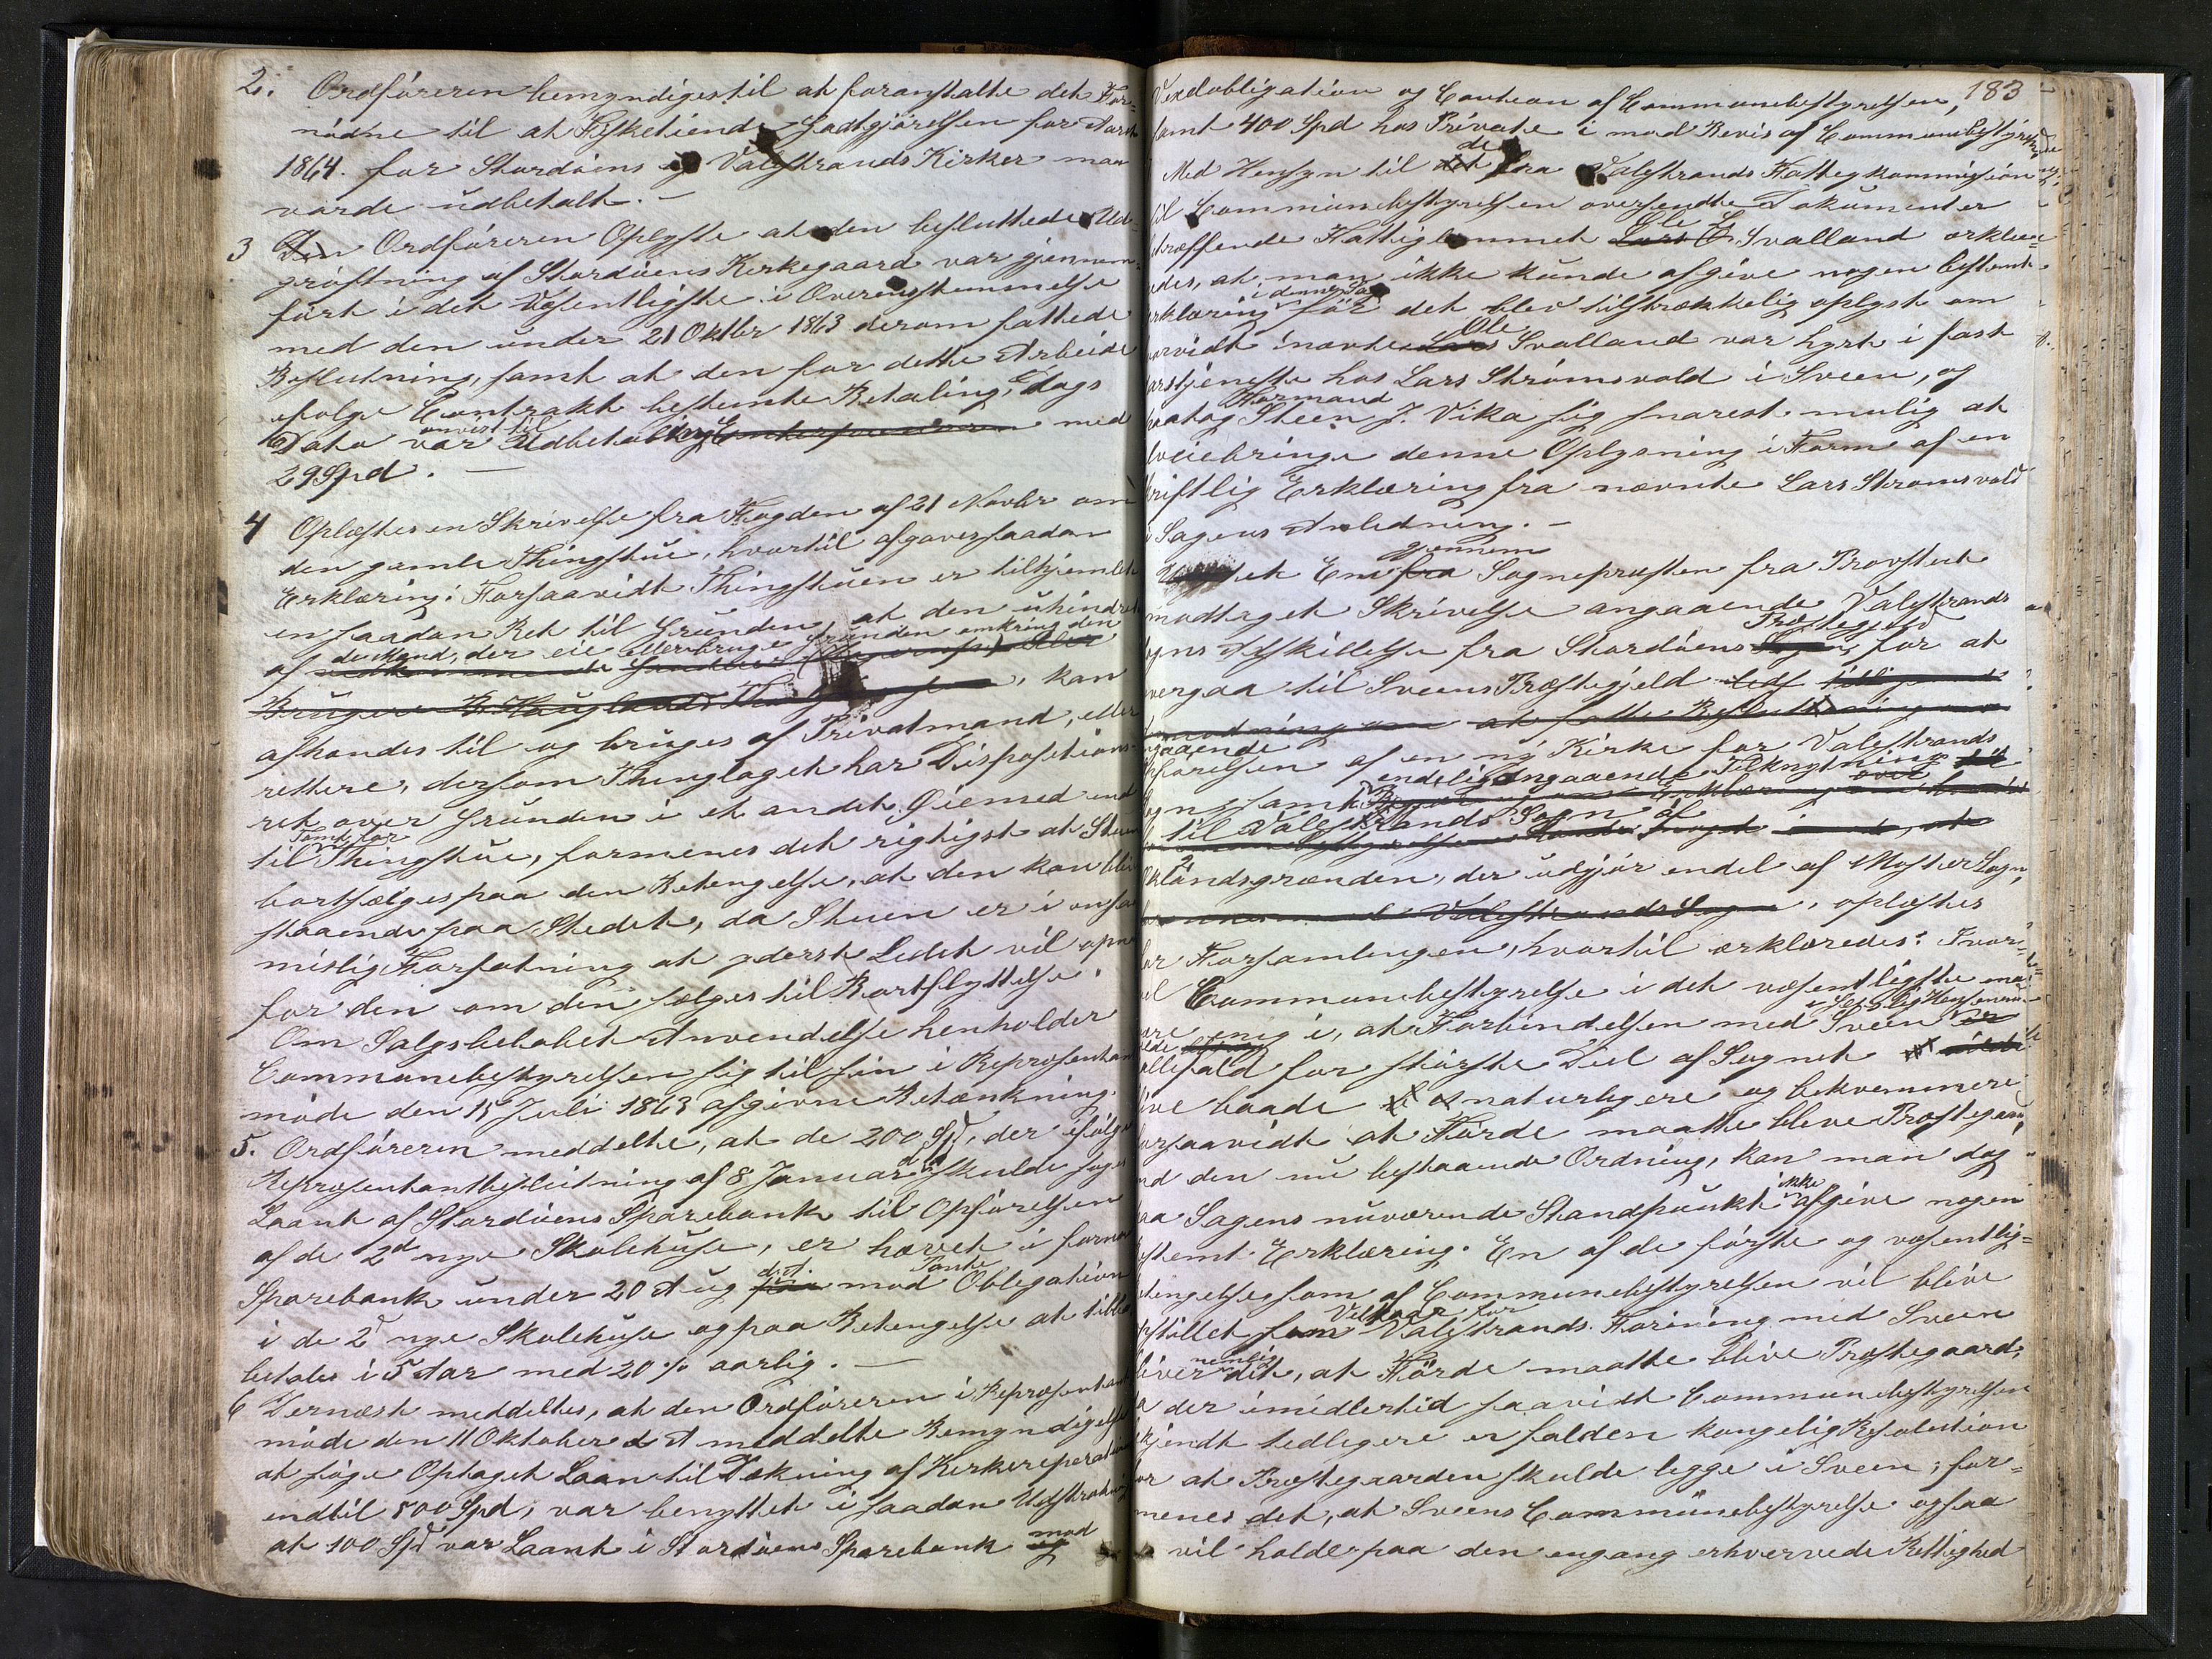 2. Ordføreren bemyndiges til at foranstalte det For-
nødne til at Fisketiende Godtgjørelsen for Aaret
1864. for Stordøens og Valestrands Kirker maa
vorde udbetalt. —
3 Den Ordføreren Oplyste at den besluttede Ud-
grøftning af Stordøens Kirkegaard var gjennem-
ført i det Væsentligste i Overensstemmelse
med den under 21 Oktbr 1863 derom fattede
Beslutning, samt at den for dette Arbeide
ifølge Contrakt bestemte Betaling, dags
anvist til
Dato var Udbetaling med
29 Spd. —
4 Oplæstes en Skrivelse fra Fogden af 21 Novbr om
den gamle Thingstue, hvortil afgaves saadan
Erklæring: Forsaavidt Thingstuen er tilhjemlet
en saadan Ret til Grunden, at den uhindret
de Mænd, der eie eller bruge Grunden omkring den
af
Brugere, kan
afhændes til og bruges af Privatmand, eller
rettere, dersom Thinglaget har Dispositions-
ret over Grunden i et andet Øiemed end
Tomt for
til Thingstue, formenes det rigtigst at Stuen
bortsælges paa den Betengelse, at den kan blive
staaende paa Stedet, da Stuen er i en saa
mislig Forfatning at yderst Lidet vil opnaaes
for den om den sælges til Bortflyttelse.
Om Salgsbeløbet Anvendelse henholder
Communebestyrelsen sig til sin i Repræsentant
møde den 15 Juli 1863 afgivne Betænkning.
5. Ordføreren meddelte, at de 200 Spd, der ifølge
Repræsentantbeslutning af 8 Januar d. A. skulde søges
Laant af Stordøens Sparebank til Opførelsen
af de 2de nye Skolehuse, er hævet i fornævnte
d. A. Pante
Sparebank under 20 Aug mod Obligation
i de 2de nye Skolehuse og paa Betengelse at tilbage
betales i 5 Aar med 20 % aarlig. —
6 Dernæst meddeltes, at den Ordføreren i Repræsentant
møde den 11 Oktober d. A meddelte Bemyndigelse
at søge Optaget Laan til Dækning af Kirkereparation
indtil 500 Spd, var benyttet i saadan Udstrækning
at 100 Spd var Laant i Stordøens Sparebank mod
183
Vexelobligation og Caution af Communebestyrelsen,
samt 400 Spd hos Private i mod Bevis af Communebestyrelsen
de
Med Hensyn til det fra Valestrands Fattigkommission
til Communebestyrelsen oversendte Dokumenter
Ole E.
træffende Fattiglemmet Lars Svalland erklæ-
redes, at man ikke kunde afgive nogen bestemt
i denne Sag
Erklæring før det blev tilstrækkelig oplyst om
Ole
hvorvidt nævnte Lars Svalland var hyrt i fast
Aarstjeneste hos Lars Strømsvold i Sveen, og
Formand
paatog Steen J. Vika sig snarest mulig at
tilveiebringe denne Oplysning i Form af en
skriftlig Erklæring fra nævnte Lars Strømsvold
i Sagens Anledning. —
gjennem
et En fra Sognepræsten fra Provstiet
modtaget Skrivelse angaaende Valestrands
Præstegjeld
Sogns Adskillelse fra Stordøens for at
overgaa til Sveens Præstegjeld
angaaende
Opførelsen af en ny Kirke for Valestrands
endelig Angaaende Tilknytning
Sogn, samt
til Valestrands Sogn af
Øklandsgrænden, der udgjør endel af Moster Sogn,
, oplæstes
for Forsamlingen, hvortil erklæredes: Hvor-
vel Communebestyrelse i det væsentligste maa
være enig i, at Forbindelsen med Sveen
ialfald for største Deel af Sognet vilde
blive baade naturligere og bekvemmere
forsaavidt at Førde maatte bleve Præstegaard,
end den nu bestaaende Ordning, kan man dog
paa Sagens nuværende Standpunkt ikke afgive nogen
bestemt Erklæring. En af de første og væsentlig-
ste Betingelser som af Communebestyrelsen vil blive
Velkaar for
opstillet som Valestrands Forening med Sveen
nemlig
bliver det, at Førde maatte blive Præstegaard;
da der imidlertid saavidt Communebestyrelsen
bekjendt tedligere er falden kongelig Resolution
for at Præstegaarden skulde legge i Sveen, for-
menes det, at Sveens Communebestyrelse ogsaa
vil holde paa den engang erhvervede Rettighed